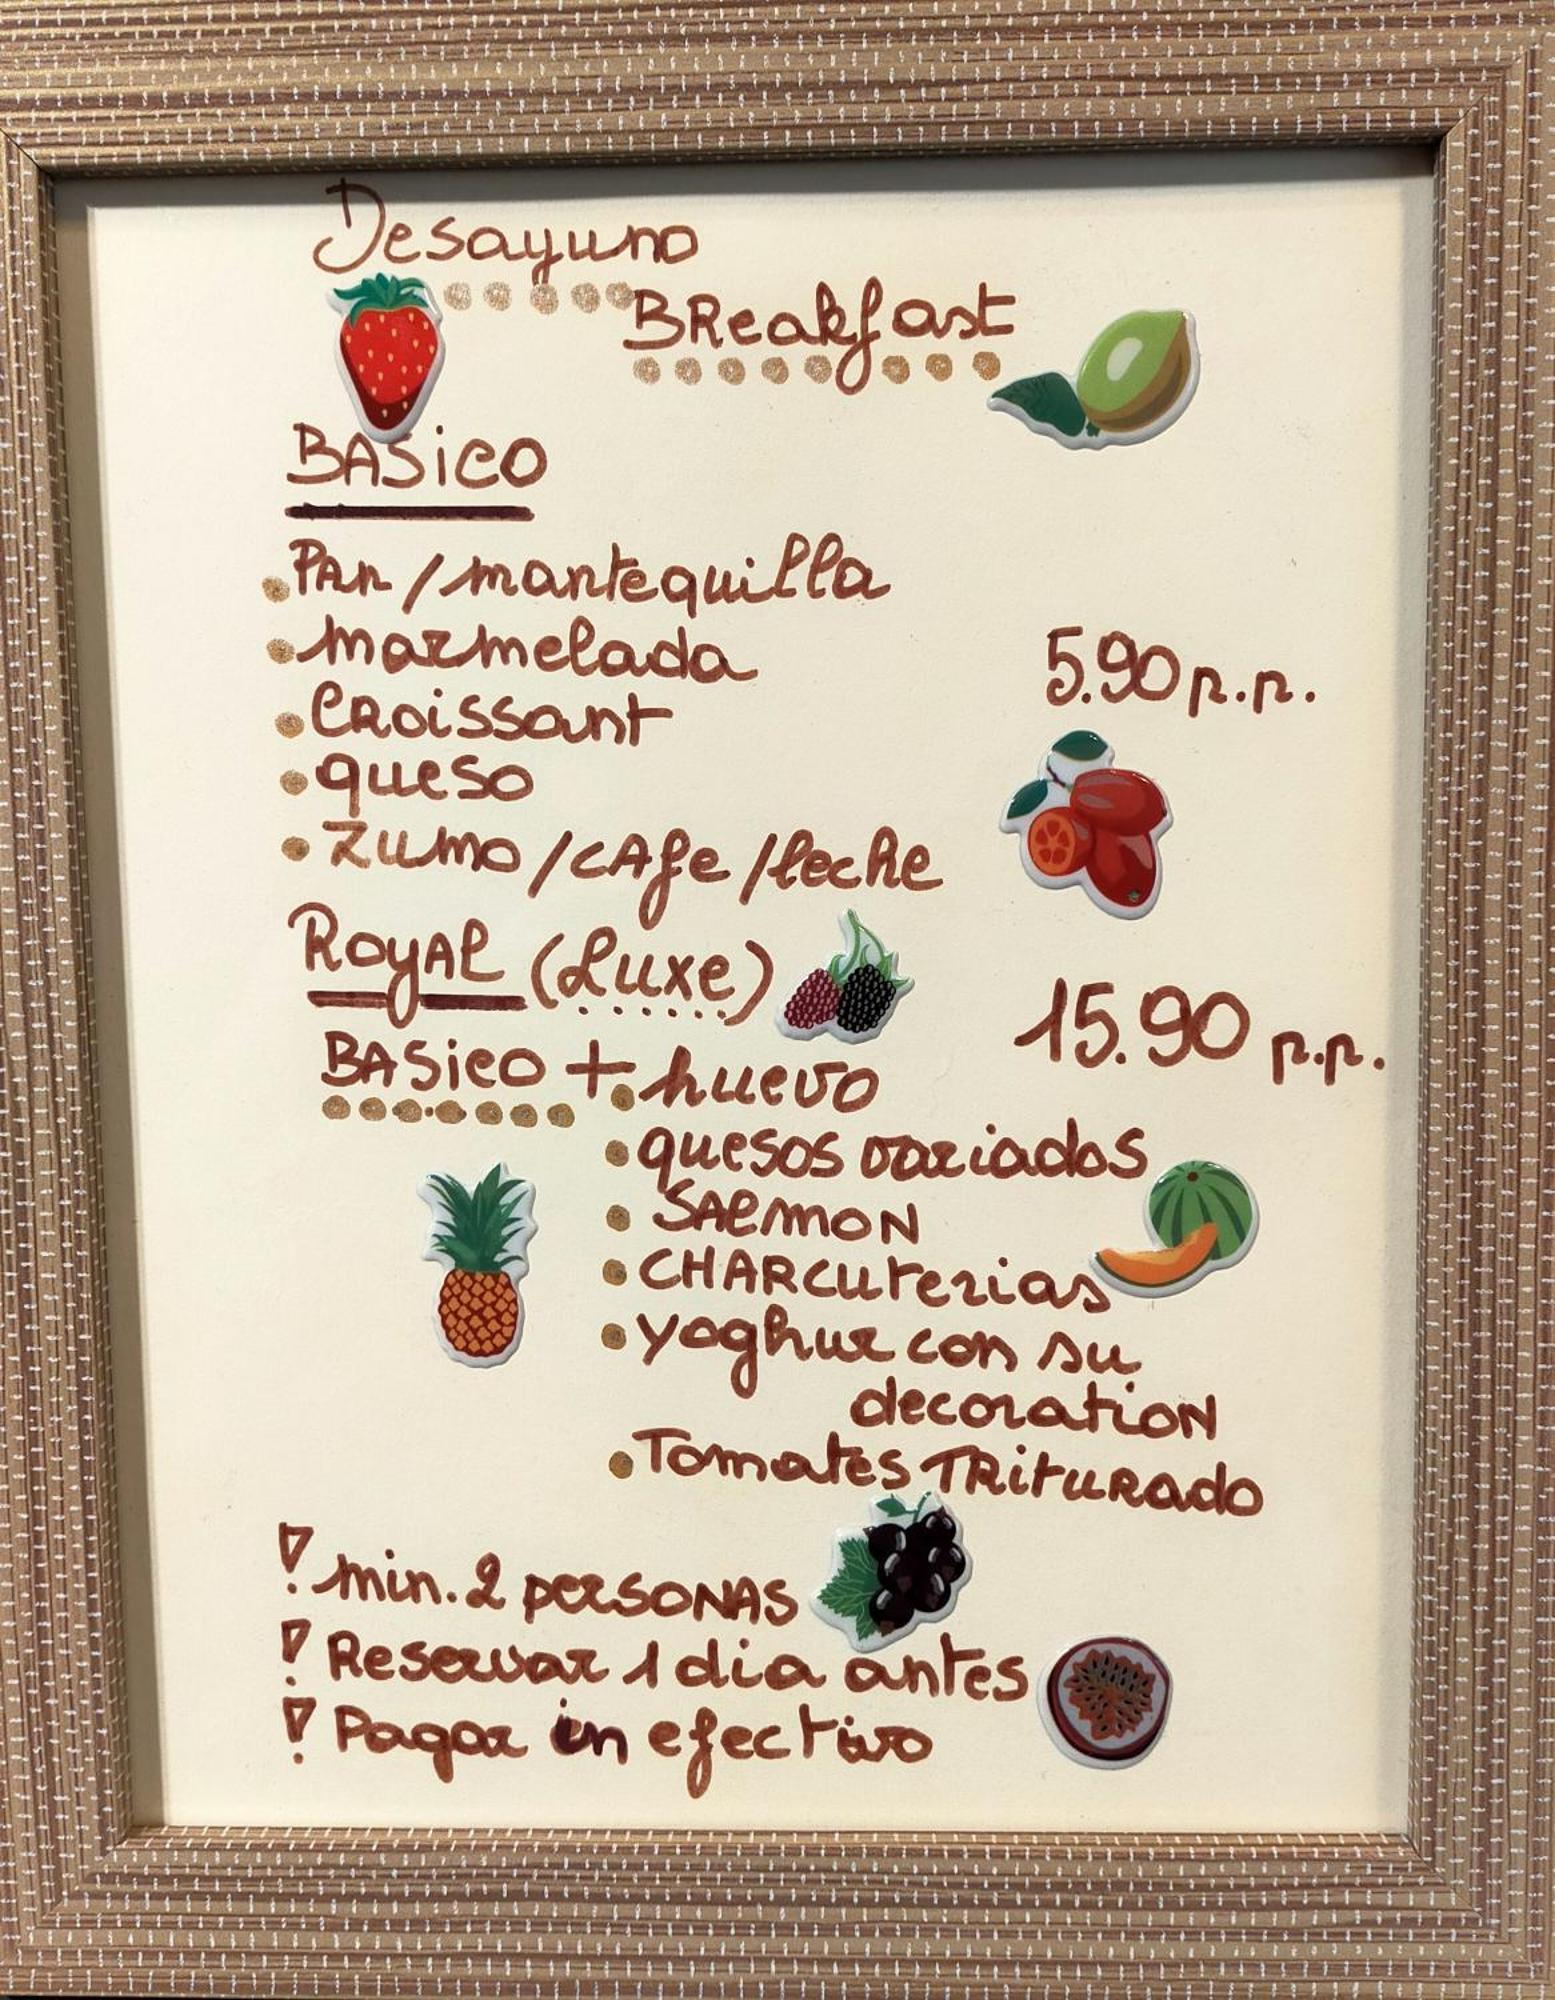 Desayuno
BReakfast
BASiCO
PAn / mantequilla
marmelada
5.90 p.p.
CRoissant
queso
Zumo / cAfe / leche
RoyAL (Luxe)
15.90 p.p.
BASiCO + huevo
quesos variados
SALMON
CHARCuterias
yoghur con su
decoration
Tomates TRiTURado
! min. 2 peRSONAS
! Reservar 1 dia antes
! Pagar in efectivo